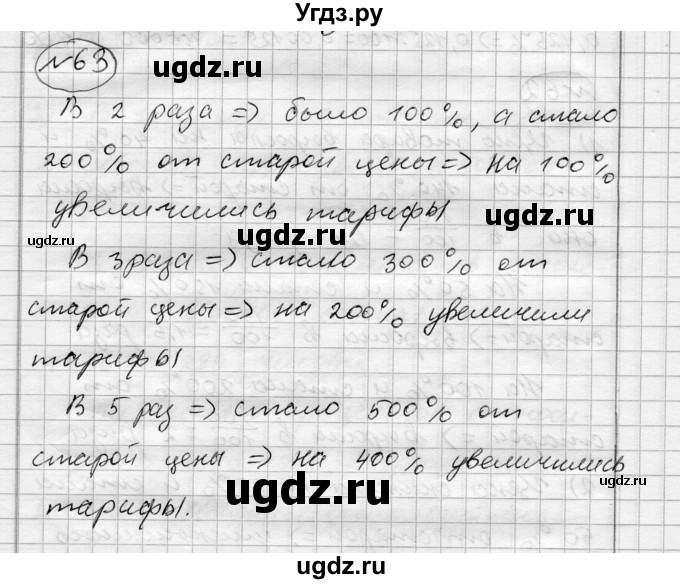 Угдз.ру
№63
ugdz.ru
В 2 раза => было 100%, а стало
200% от старой цены => на 100%
увеличились тарифы
ugdz.ru
ugdz.ru
ugdz.ru
В 3 раза => стало 300% от
старой цены => на 200% увеличили
тарифы
ugdz.ru
ugdz.ru
В 5 раз => стало 500% от
старой цены => на 400% увеличились
тарифы.
ugdz.ru
ugdz.ru
ugdz.ru
ugdz.ru